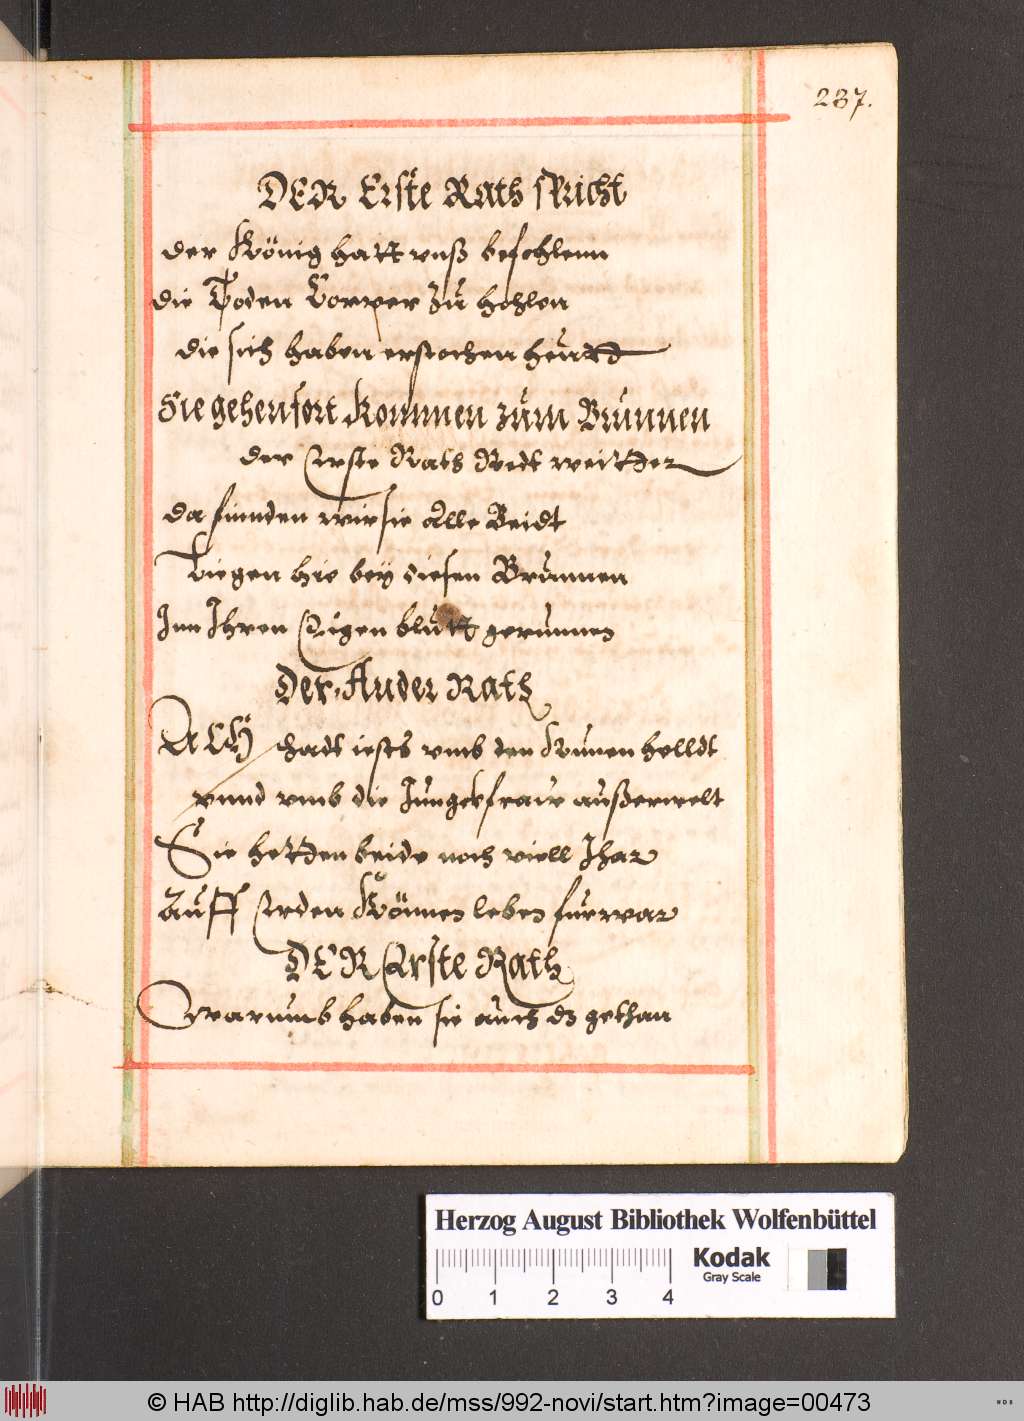 237.
DER Erste Rath spricht
der König hatt vnß befohlenn
die Toden Corper zu hohlen
die sich haben erstochen heutt
Sie gehen fort kommen zum Brunnen
der Erste Rath Redt weitter
da finnden wir sie Alle Beidt
Liegen hie bey diesen Brunnen
Inn Ihren Eigen blutt gerunnen
Der Ander Rath
ACH schadt ists vmb den Künen helldt
vnnd vmb die Jungckfraw außerwelt
Sie hetten beide noch viell Ihar
Auff Erden Können leben fuerwar
DER Erste Rath
Warumb haben sie auch dz gethan
Herzog August Bibliothek Wolfenbüttel
Kodak
Gray Scale
0 1 2 3 4
© HAB http://diglib.hab.de/mss/992-novi/start.htm?image=00473